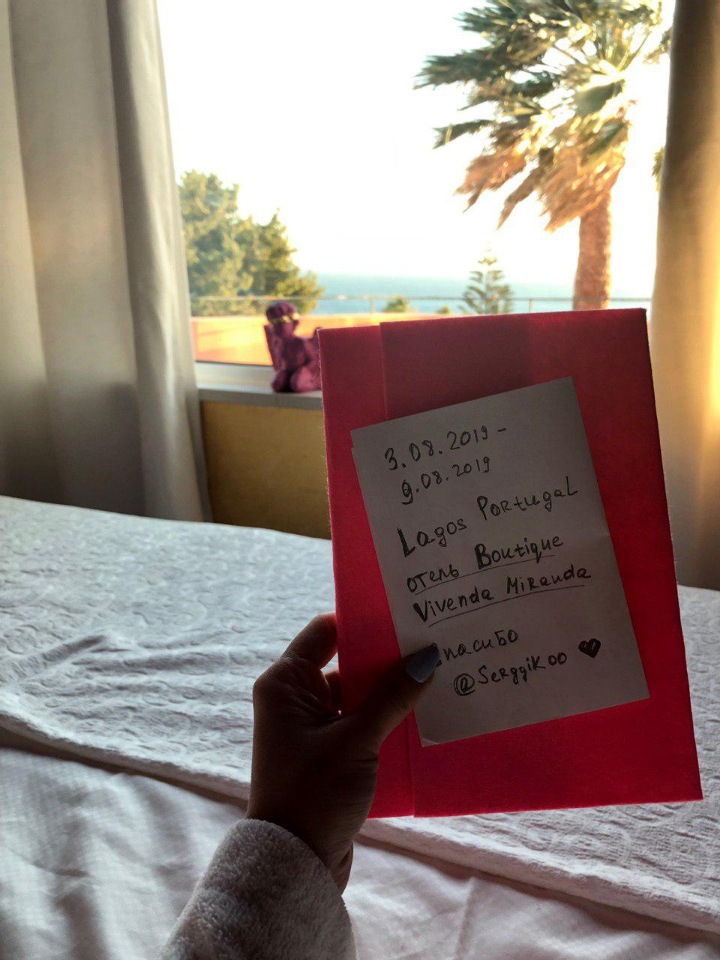 3.08.2019 -
9.08.2019
Lagos Portugal
отель Boutique
Vivenda Miranda
спасибо
@Serggikoo ♥